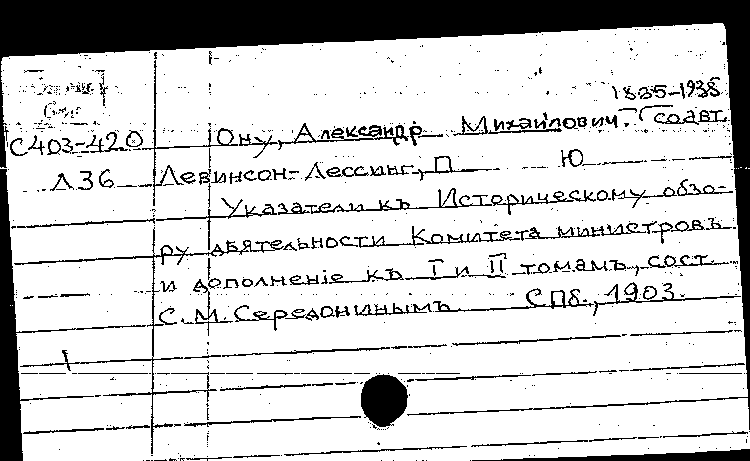 1835-1938
С403-420 Ону, Александр Михайлович. соавт.
Л36 Левинсон-Лессинг, П Ю
Указатели къ Историческому обзо-
ру дѣятельности Комитета министровъ
и дополненіе къ I и II томамъ, сост.
С. М. Середонинымъ. СПб., 1903.